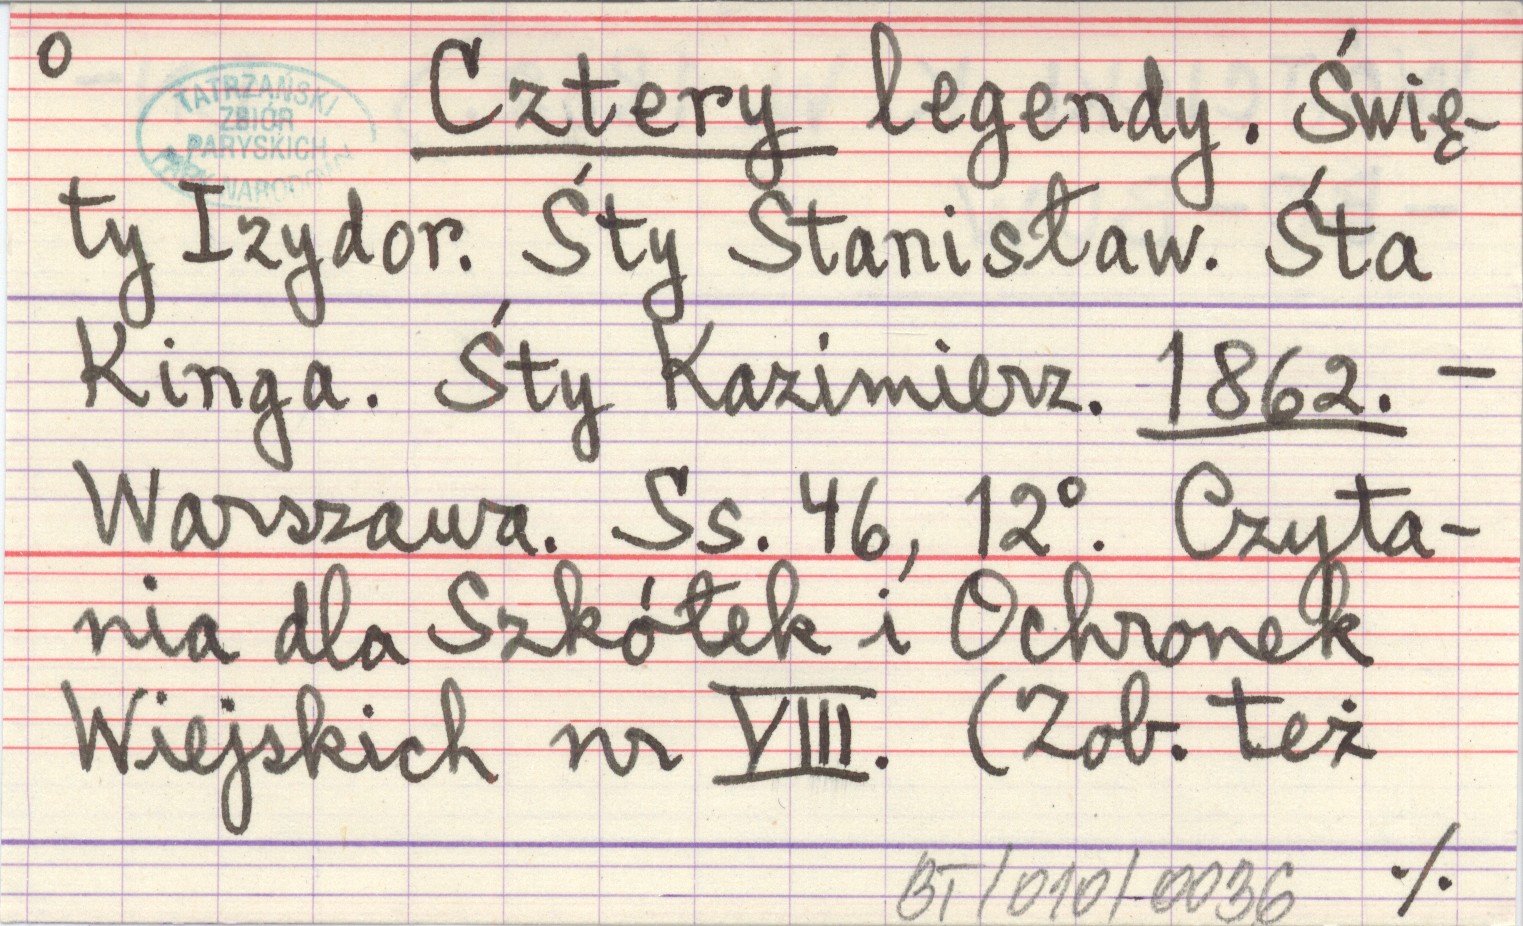 o
Cztery legendy. Świę-
TATRZAŃSKI
ZBIÓR
PARYSKICH
PARK NARODOWY
ty Izydor. Śty Stanisław. Śta
Kinga. Śty Kazimierz. 1862. –
Warszawa. Ss. 46, 12°. Czyta-
nia dla Szkółek i Ochronek
Wiejskich nr VIII. (Zob. też
BT/010/0036
./.